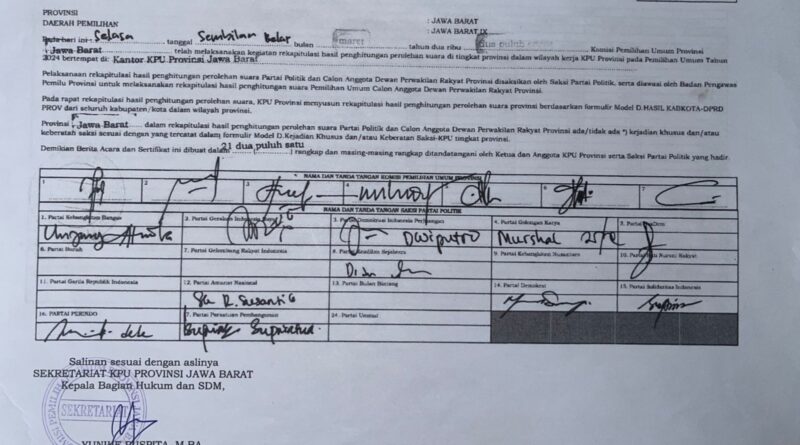 PROVINSI : JAWA BARAT
DAERAH PEMILIHAN : JAWA BARAT IX
Pada hari ini Selasa tanggal Sembilan Belas bulan maret tahun dua ribu dua puluh Komisi Pemilihan Umum Provinsi
Jawa Barat telah melaksanakan kegiatan rekapitulasi hasil penghitungan perolehan suara di tingkat provinsi dalam wilayah kerja KPU Provinsi pada Pemilihan Umum Tahun
2024 bertempat di: Kantor KPU Provinsi Jawa Barat
Pelaksanaan rekapitulasi hasil penghitungan perolehan suara Partai Politik dan Calon Anggota Dewan Perwakilan Rakyat Provinsi disaksikan oleh Saksi Partai Politik, serta diawasi oleh Badan Pengawas
Pemilu Provinsi untuk melaksanakan rekapitulasi hasil penghitungan perolehan suara Pemilihan Umum Calon Anggota Dewan Perwakilan Rakyat Provinsi.
Pada rapat rekapitulasi hasil penghitungan perolehan suara, KPU Provinsi menyusun rekapitulasi hasil penghitungan perolehan suara provinsi berdasarkan formulir Model D.HASIL KABKOTA-DPRD
PROV dari seluruh kabupaten/kota dalam wilayah provinsi.
Provinsi Jawa Barat dalam rekapitulasi hasil penghitungan perolehan suara Partai Politik dan Calon Anggota Dewan Perwakilan Rakyat Provinsi ada/tidak ada *) kejadian khusus dan/atau
keberatan saksi sesuai dengan yang tercatat dalam formulir Model D.Kejadian Khusus dan/atau Keberatan Saksi-KPU tingkat provinsi.
Demikian Berita Acara dan Sertifikat ini dibuat dalam 21 dua puluh satu rangkap dan masing-masing rangkap ditandatangani oleh Ketua dan Anggota KPU Provinsi serta Saksi Partai Politik yang hadir.
NAMA DAN TANDA TANGAN KOMISI PEMILIHAN UMUM PROVINSI
1 2 3 4 6 7
NAMA DAN TANDA TANGAN SAKSI PARTAI POLITIK
1. Partai Kebangkitan Bangsa 2. Partai Gerakan Indonesia 3. Partai Demokrasi Indonesia Perjuangan 4. Partai Golongan Karya
Dwiputro Murshal
6. Partai Buruh 7. Partai Gelombang Rakyat Indonesia 8. Partai Keadilan Sejahtera 9. Partai Kebangkitan Nusantara 10. Partai Hati Nurani Rakyat
11. Partai Garda Republik Indonesia 12. Partai Amanat Nasional 13. Partai Bulan Bintang 14. Partai Demokrat 15. Partai Solidaritas Indonesia
R. Susanti
16. PARTAI PERINDO 17. Partai Persatuan Pembangunan 24. Partai Ummat
Salinan sesuai dengan aslinya
SEKRETARIAT KPU PROVINSI JAWA BARAT
Kepala Bagian Hukum dan SDM,
SEKRETARIAT